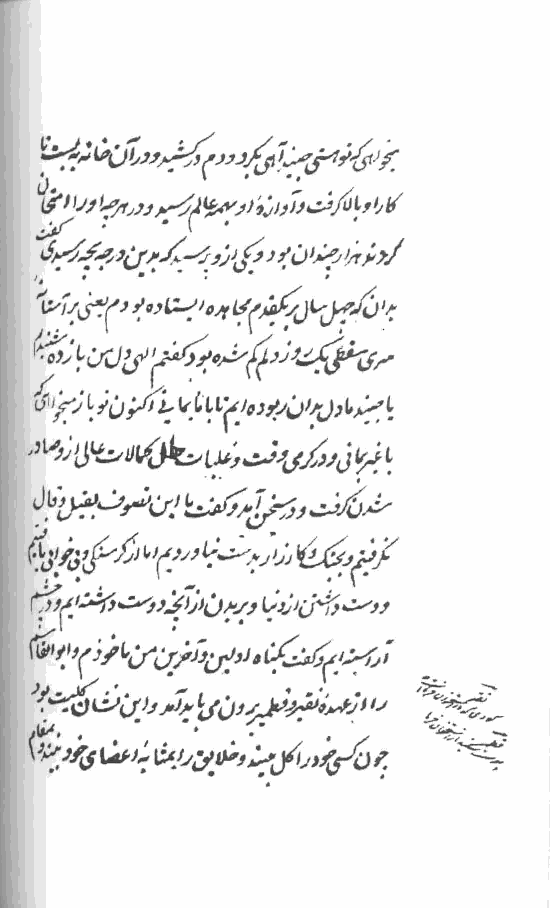 بخواهی که نوهستی جنید آهی بکرد و دم درکشید و در آن خانه به نشست تا
کار او بالا گرفت و آوازهٔ او بهمه عالم رسید و در هرچه او را امتحان
کردند هزار چندان بود و یکی از وی پرسید که بدین درجه بچه رسیدی گفت
بدان که چهل سال بر یکقدم مجاهده ایستاده بودم یعنی بر آستانه
سری سقطی یک روز دلم گم شده بود گفتم الهی دل من باز ده شنیدم
یا جنید ما دل بدان ربوده ایم تا با ما بمانی اکنون تو باز میخواهی که
با غیر بمانی و در گرمی وقت و غلبات حال کمالات عالی ازو صادر
شدن گرفت و در سخن آمد و گفت ما این تصوف بقیل و قال
نگرفتیم و بجنگ و کارزار بدست نیاوردیم اما از گرسنگی و بی خوابی یافتیم
و دست داشتن از دنیا و بریدن از آنچه دوست داشته ایم و در چشم
آراسته ایم و گفت یکتاه اولین و آخرین من با خود دارم و ابو القاسم
را از عهدهٔ نقیر و قطمیر برون می باید آمد و این نشان کلیت بود
چون کسی خود را کل بیند و خلایق را بمثابهٔ اعضای خود بیند و بمقام